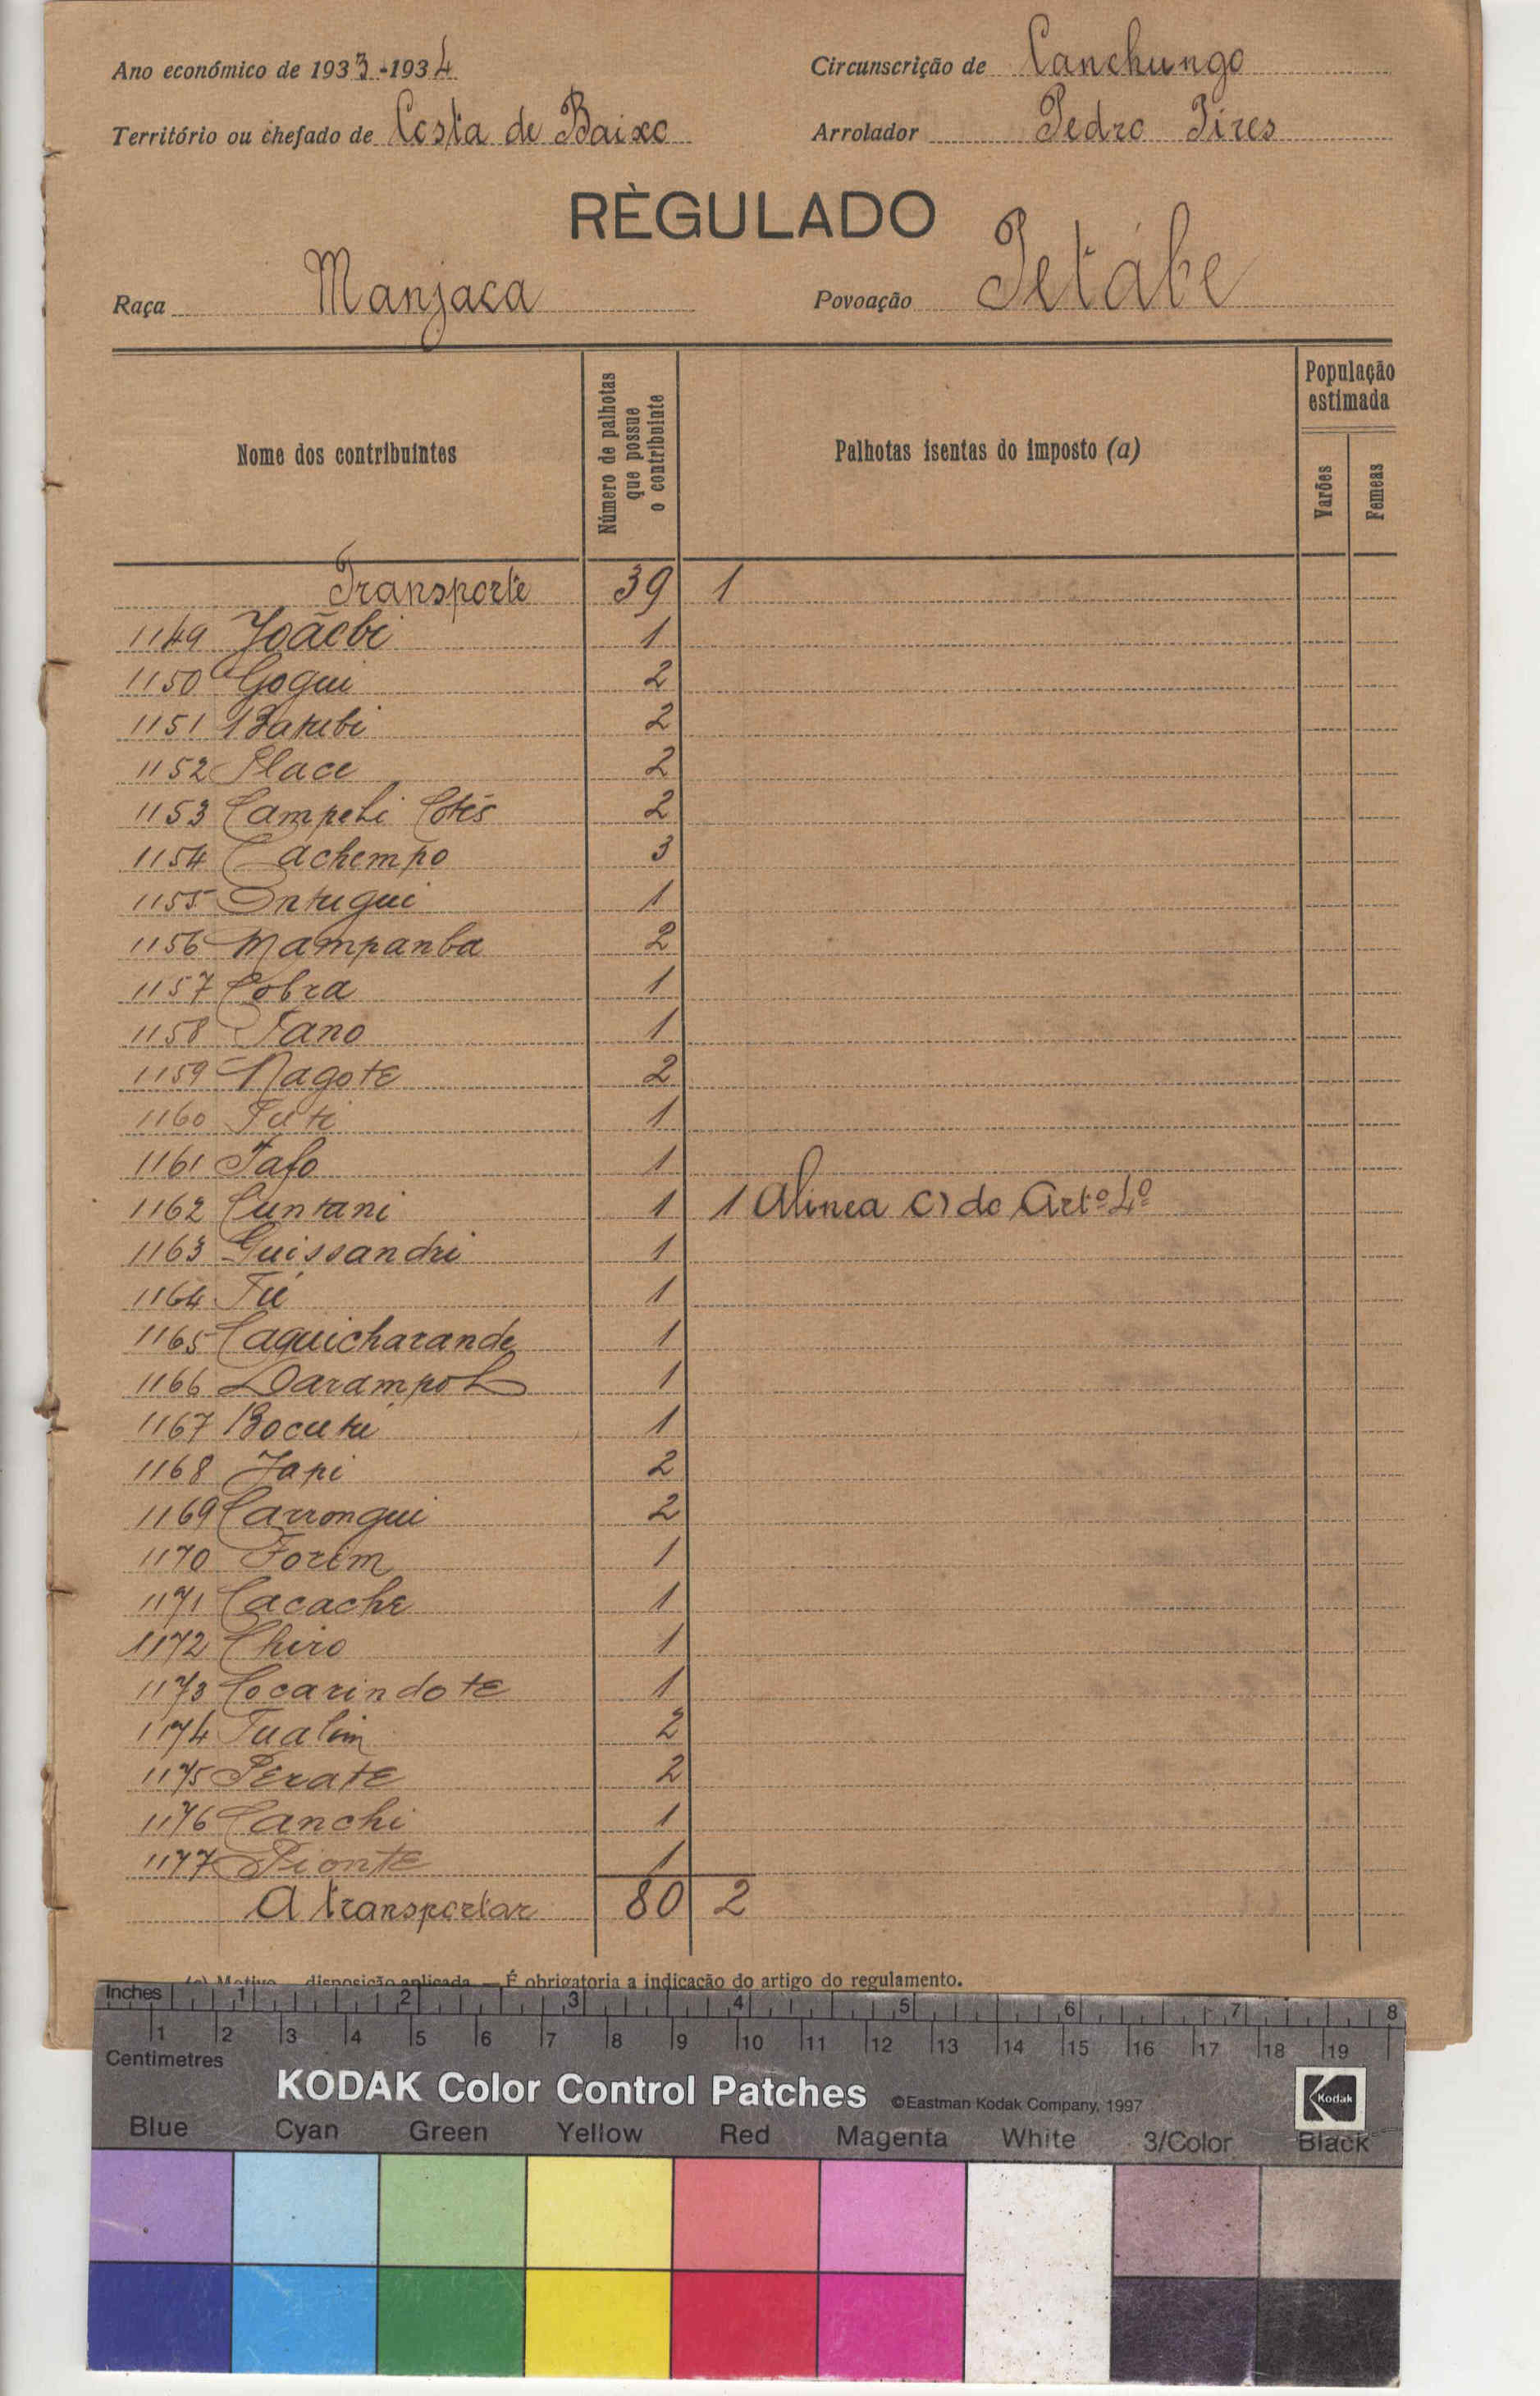 Ano económico de 1933-1934 Circunscrição de Canchungo
Território ou chefado de Costa de Baixo Arrolador Pedro Pires
RÈGULADO
Raça Manjaca Povoação Petábe
Nome dos contribuintes Número de palhotas que possue o contribuinte Palhotas isentas do imposto (a) População estimada Varões Femeas
Transporte 39 1
1149 Joãobi 1
1150 Gogui 2
1151 Batubi 2
1152 Place 2
1153 Campeli Cotés 2
1154 Cachempo 3
1155 Intugui 1
1156 Mampanba 2
1157 Cobra 1
1158 Tano 1
1159 Nagote 2
1160 Tuti 1
1161 Jafo 1
1162 Cuntani 1 1 Alinea C) do Artº 4º
1163 Guissandri 1
1164 Tú 1
1165 Caquicharande 1
1166 Darampol 1
1167 Bocutu 1
1168 Japi 2
1169 Carrongui 2
1170 Forim 1
1171 Cacache 1
1172 Chiro 1
1173 Cocarindote 1
1174 Tualim 2
1175 Perate 2
1176 Canchi 1
1177 Pionte 1
A transportar 80 2
disposição aplicada — É obrigatoria a indicação do artigo do regulamento.
Inches 1 2 3 4 5 6 7 8
1 2 3 4 5 6 7 8 9 10 11 12 13 14 15 16 17 18 19
Centimetres
KODAK Color Control Patches ©Eastman Kodak Company, 1997 Kodak
Blue Cyan Green Yellow Red Magenta White 3/Color Black